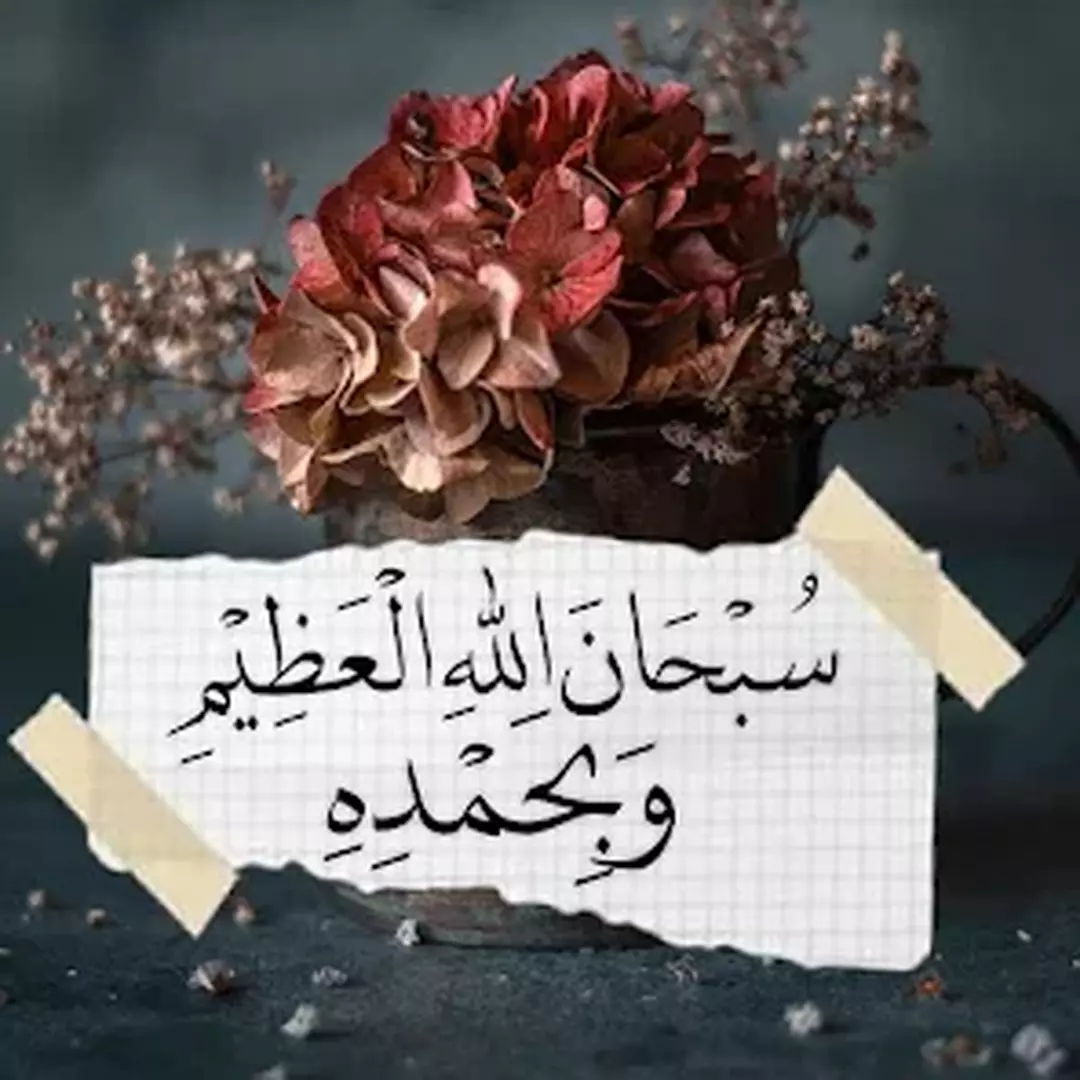 سُبْحَانَ اللهِ الْعَظِيْمِ
وَبِحَمْدِهِ